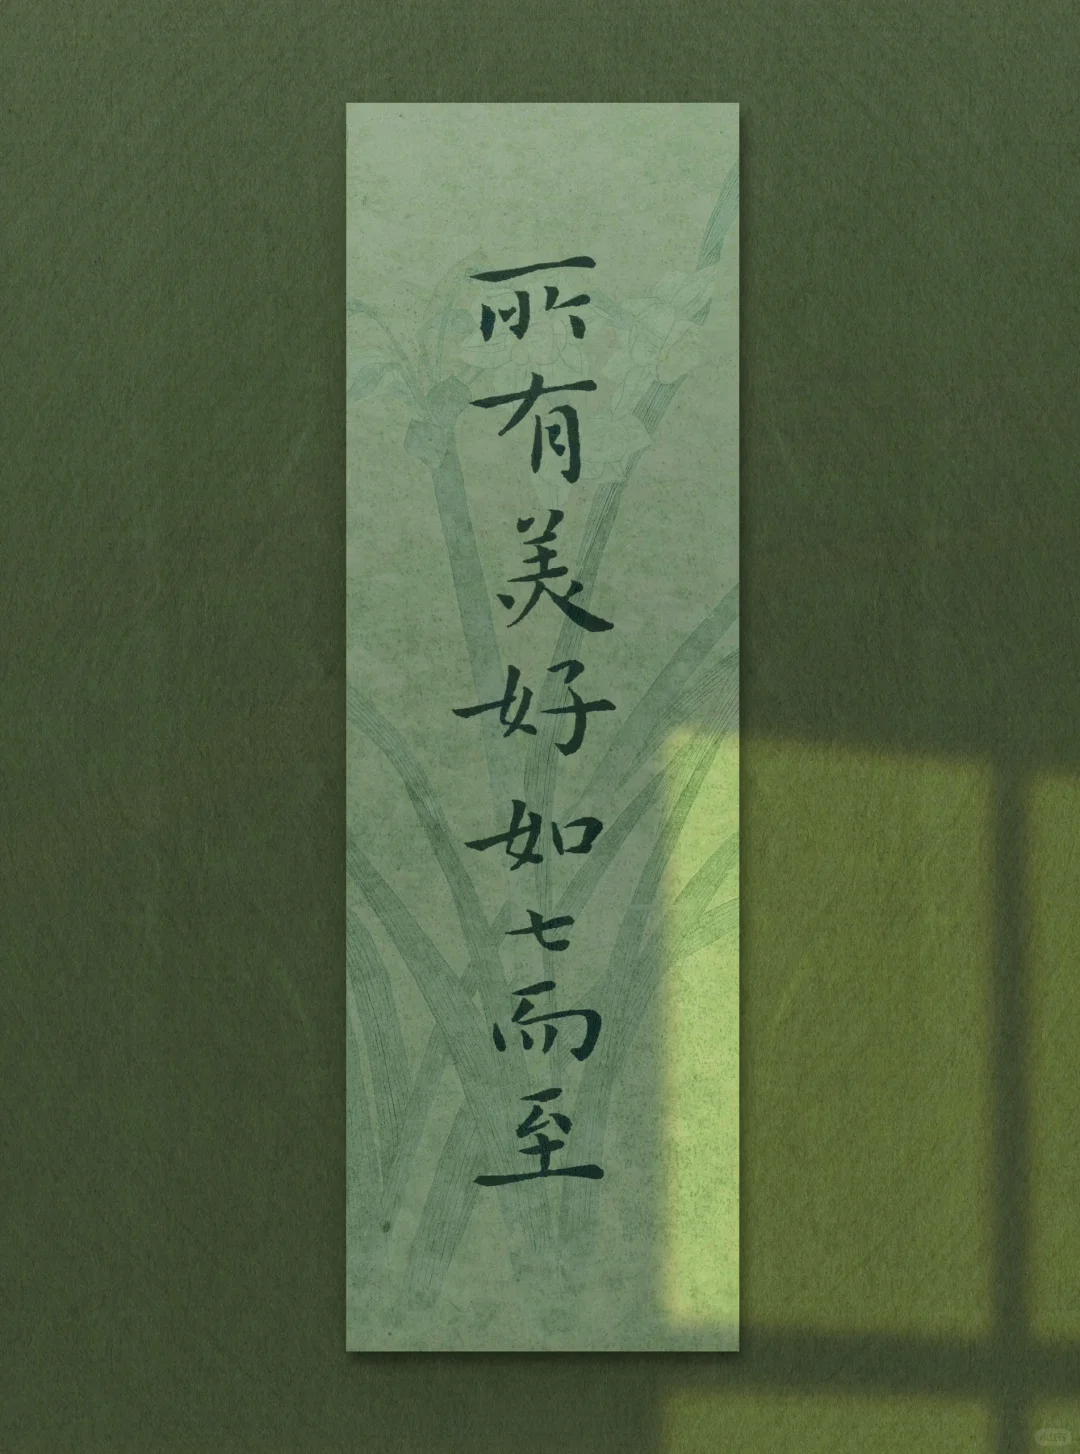 所有美好如七而至